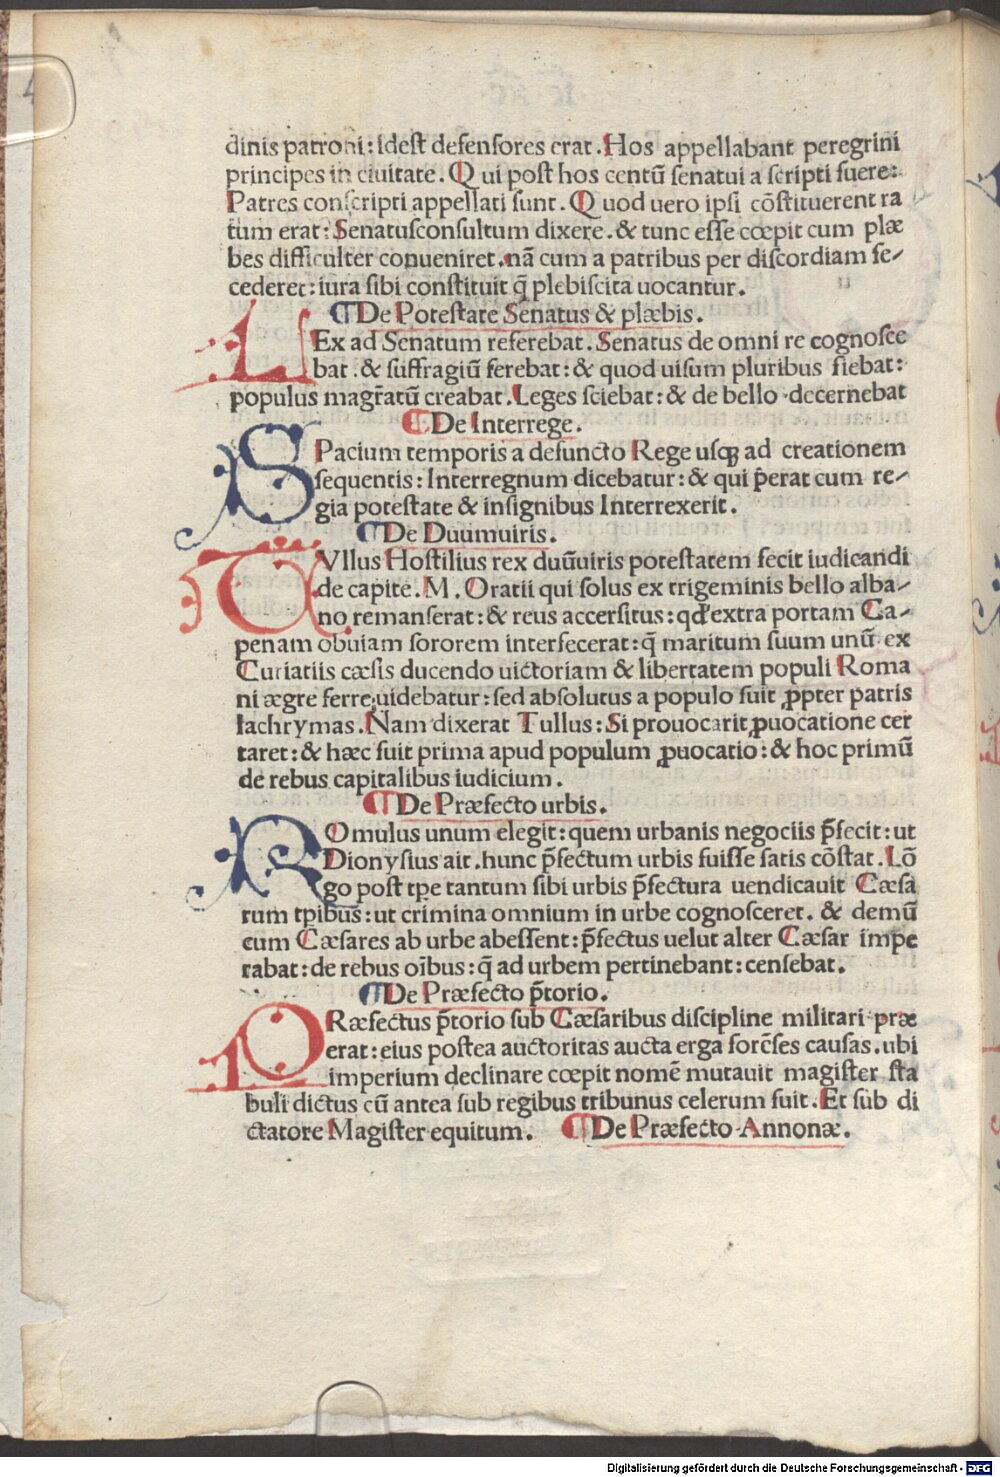 dinis patroni: idest defensores erat. Hos appellabant peregrini
principes in ciuitate. Qui post hos centū senatui a scripti fuere:
Patres conscripti appellati sunt. Quod uero ipsi cōstituerent ra
tum erat: Senatusconsultum dixere. & tunc esse cœpit cum plæ
bes difficulter conueniret. nā cum a patribus per discordiam se-
cederet: iura sibi constituit q̄ plebiscita uocantur.
¶ De Potestate Senatus & plæbis.
LEx ad Senatum referebat. Senatus de omni re cognosce
bat. & suffragiū ferebat: & quod uisum pluribus fiebat:
populus magr̄atū creabat. Leges sciebat: & de bello decernebat
¶ De Interrege.
SPacium temporis a defuncto Rege usqꝫ ad creationem
sequentis: Interregnum dicebatur: & qui p̄erat cum re-
gia potestate & insignibus Interrexerit.
¶ De Duumuiris.
TVllus Hostilius rex duūuiris potestatem fecit iudicandi
de capite. M. Oratii qui solus ex trigeminis bello alba-
no remanserat: & reus accersitus: qđ extra portam Ca-
penam obuiam sororem interfecerat: q̄ maritum suum unū ex
Curiatiis cæsis ducendo uictoriam & libertatem populi Roma
ni ægre ferre uidebatur: sed absolutus a populo fuit ꝓpter patris
lachrymas. Nam dixerat Tullus: Si prouocarit ꝓuocatione cer
taret: & hæc fuit prima apud populum ꝓuocatio: & hoc primū
de rebus capitalibus iudicium.
¶ De Præfecto urbis.
ROmulus unum elegit: quem urbanis negociis p̄fecit: ut
Dionysius ait. hunc p̄fectum urbis fuisse satis cōstat. Lō
go post tp̄e tantum sibi urbis p̄fectura uendicauit Cæsa
rum tp̄ibus: ut crimina omnium in urbe cognosceret. & demū
cum Cæsares ab urbe abessent: p̄fectus uelut alter Cæsar impe
rabat: de rebus oībus: q̄ ad urbem pertinebant: censebat.
¶ De Præfecto p̄torio.
PRæfectus p̄torio sub Cæsaribus discipline militari præ
erat: eius postea auctoritas aucta erga forēses causas. ubi
imperium declinare cœpit nomē mutauit magister sta
buli dictus cū antea sub regibus tribunus celerum fuit. Et sub di
ctatore Magister equitum. ¶ De Præfecto Annonæ.
Digitalisierung gefördert durch die Deutsche Forschungsgemeinschaft - DFG